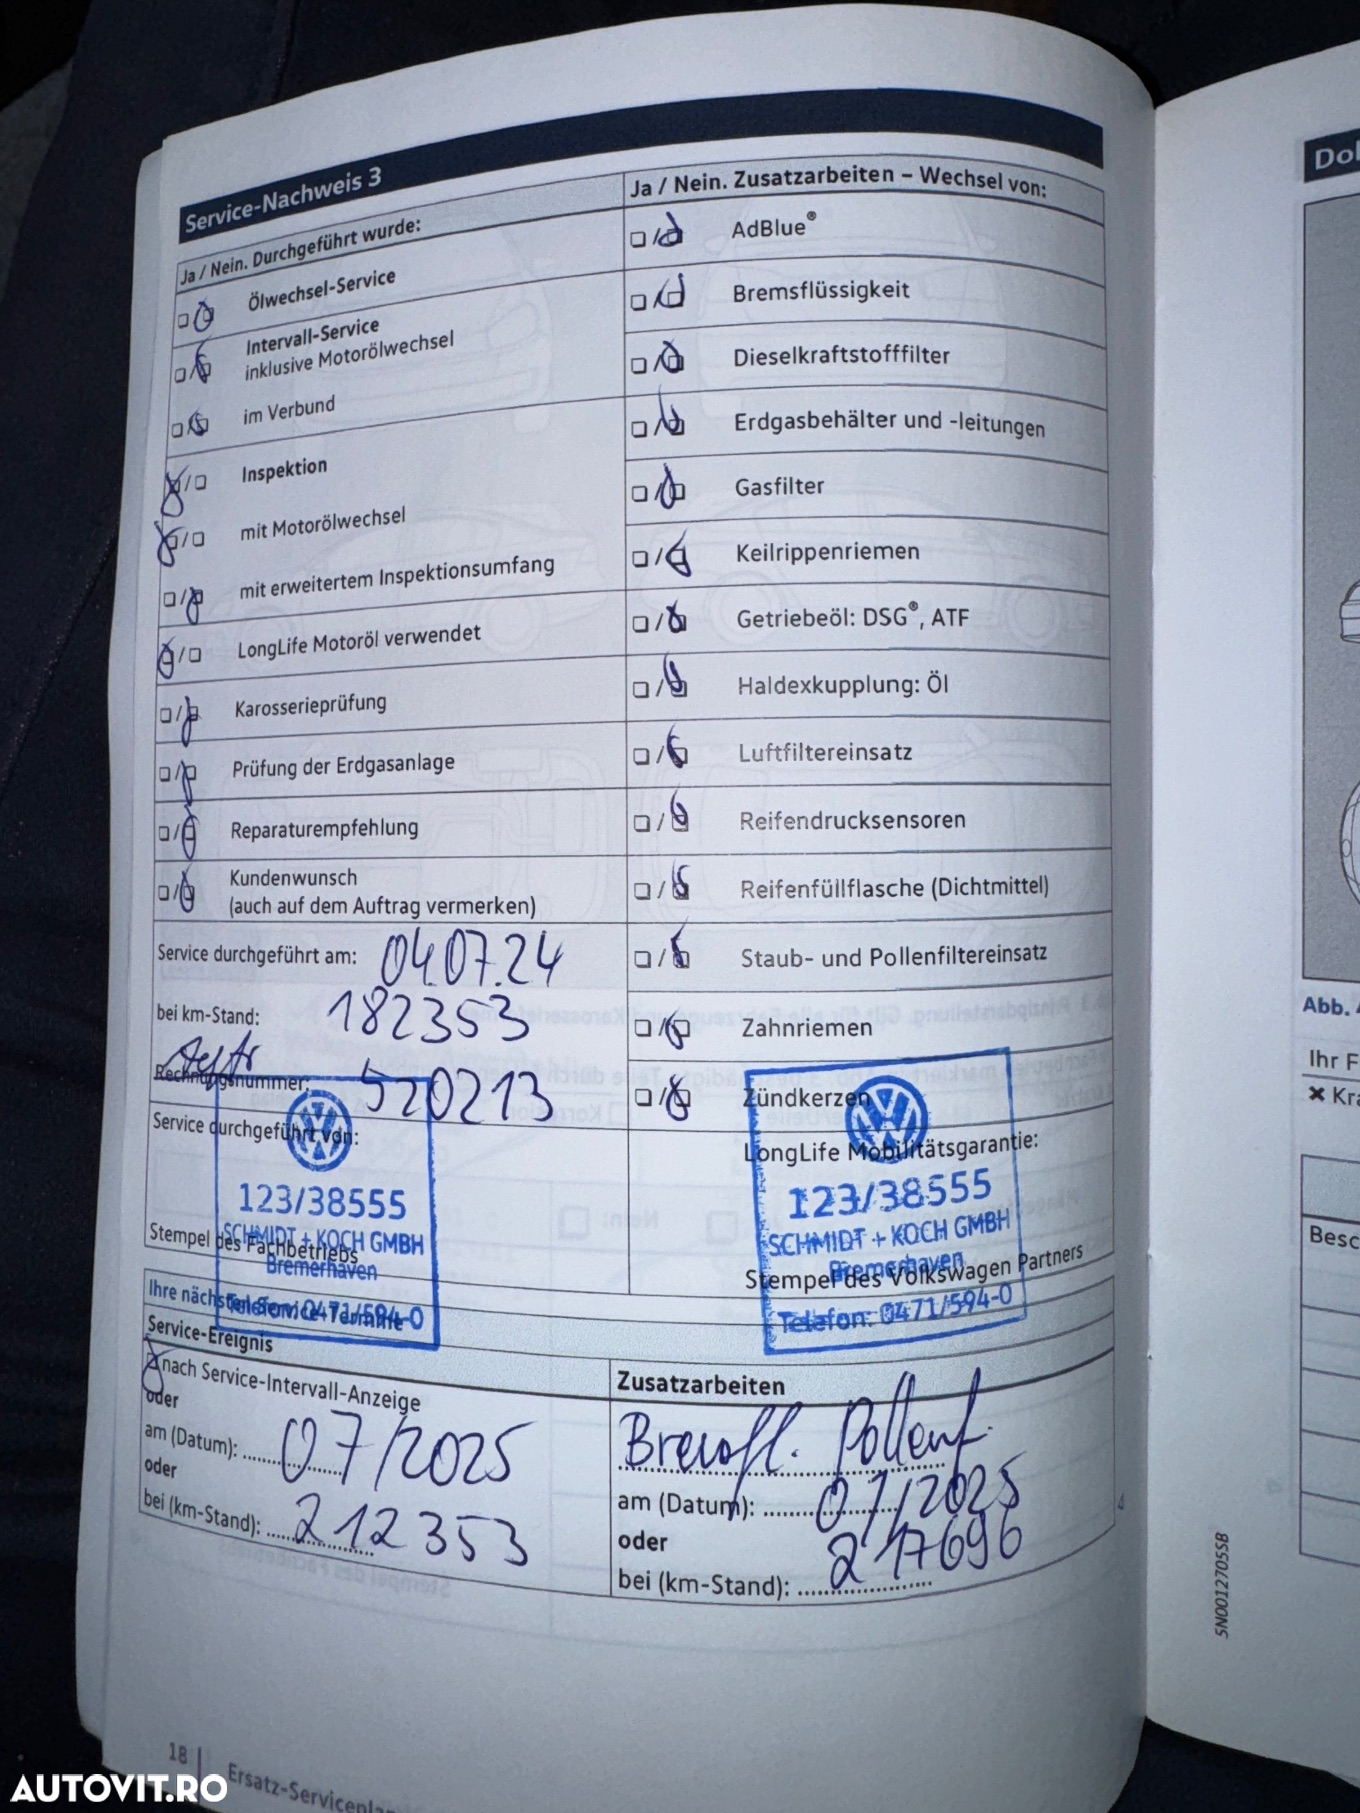 Service-Nachweis 3
Ja / Nein. Durchgeführt wurde:
Ölwechsel-Service
Intervall-Service
inklusive Motorölwechsel
im Verbund
Inspektion
mit Motorölwechsel
mit erweitertem Inspektionsumfang
LongLife Motoröl verwendet
Karosserieprüfung
Prüfung der Erdgasanlage
Reparaturempfehlung
Kundenwunsch
(auch auf dem Auftrag vermerken)
Service durchgeführt am: 04.07.24
bei km-Stand: 182353
Rechnungsnummer: 520213
Service durchgeführt von:
123/38555
SCHMIDT + KOCH GMBH
Bremerhaven
Telefon: 0471/594-0
Stempel des Fachbetriebs
Ja / Nein. Zusatzarbeiten – Wechsel von:
AdBlue®
Bremsflüssigkeit
Dieselkraftstofffilter
Erdgasbehälter und -leitungen
Gasfilter
Keilrippenriemen
Getriebeöl: DSG®, ATF
Haldexkupplung: Öl
Luftfiltereinsatz
Reifendrucksensoren
Reifenfüllflasche (Dichtmittel)
Staub- und Pollenfiltereinsatz
Zahnriemen
Zündkerzen
LongLife Mobilitätsgarantie:
123/38555
SCHMIDT + KOCH GMBH
Bremerhaven
Telefon: 0471/594-0
Stempel des Volkswagen Partners
Ihre nächsten Service-Termine
Service-Ereignis
nach Service-Intervall-Anzeige
oder
am (Datum): 07/2025
oder
bei (km-Stand): 212353
Zusatzarbeiten
Pollenf.
am (Datum): 07/2025
oder
bei (km-Stand): 217696
18 | Ersatz-Serviceplan
5N0012705SB
Abb.
Ihr F
Besc
AUTOVIT.RO